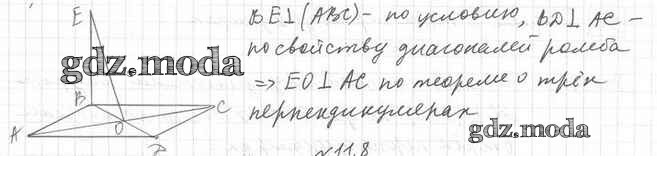 E
BE⊥(ABC) - по условию, BD⊥AC -
по свойству диагоналей ромба
gdz.moda
⇒ EO⊥AC по теореме о трёх
перпендикулярах
B
C
A
O
D
gdz.moda
№11.8